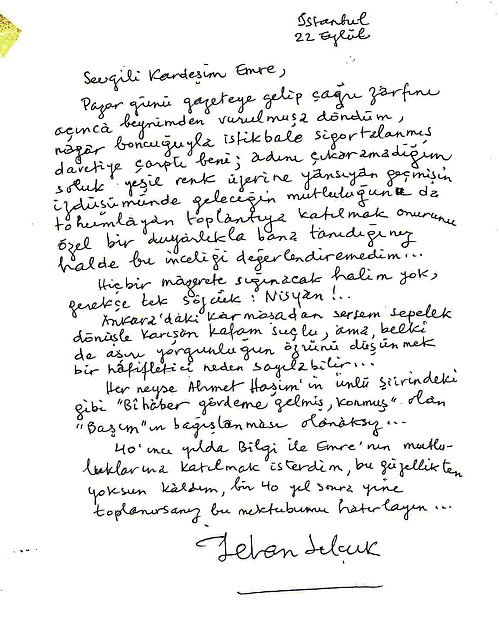 İstanbul
22 Eylül
Sevgili Kardeşim Emre,
Pazar günü gazeteye gelip çağrı zarfını
açınca beynimden vurulmuşa döndüm,
nazar boncuğuyla istikbale sigortalanmış
davetiye çarptı beni; adını çıkaramadığım
soluk yeşil renk üzerine yansıyan geçmişin
izdüşümünde geleceğin mutluluğunu da
tohumlayan toplantıya katılmak onurunu
özel bir duyarlıkla bana tanıdığınız
halde bu inceliği değerlendiremedim...
Hiçbir mazerete sığınacak halim yok,
gerekçe tek sözcük: Nisyan!..
Ankara'daki karmaşadan sersem sepelek
dönüşle karışan kafam suçlu, ama, belki
de aşırı yorgunluğun özrünü düşünmek
bir hafifletici neden sayılabilir...
Her neyse Ahmet Haşim'in ünlü şiirindeki
gibi "Bîhaber gövdeme gelmiş, konmuş" olan
"Başım"ın bağışlanması olanaksız...
40'ıncı yılda Bilgi ile Emre'nin mutlu-
luklarına katılmak isterdim, bu güzellikten
yoksun kaldım, bir 40 yıl sonra yine
toplanırsanız bu mektubumu hatırlayın...
İlhan Selçuk